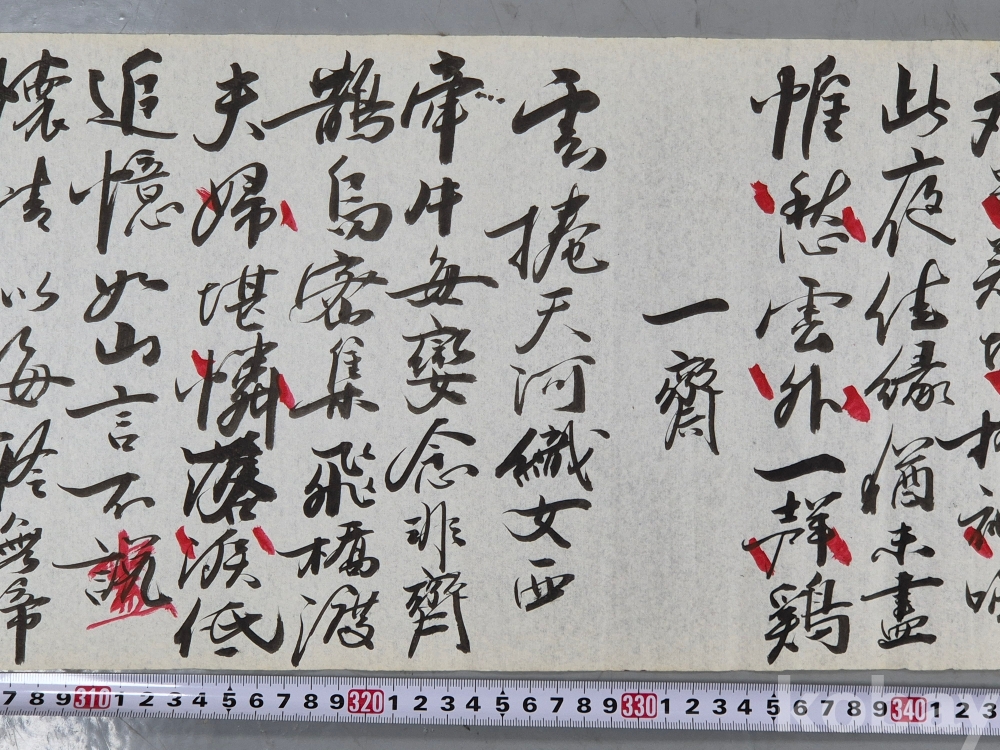 此夜佳緣猶未盡
惟愁雲外一聲鶏
一齊
雲掩天河織女西
牽牛每孌念非齊
鵲烏密集飛橋渡
夫婦堪憐落淚低
追憶如山言不說
盡
懷情以海終無
7 8 9 310 1 2 3 4 5 6 7 8 9 320 1 2 3 4 5 6 7 8 9 330 1 2 3 4 5 6 7 8 9 340 1 2 3